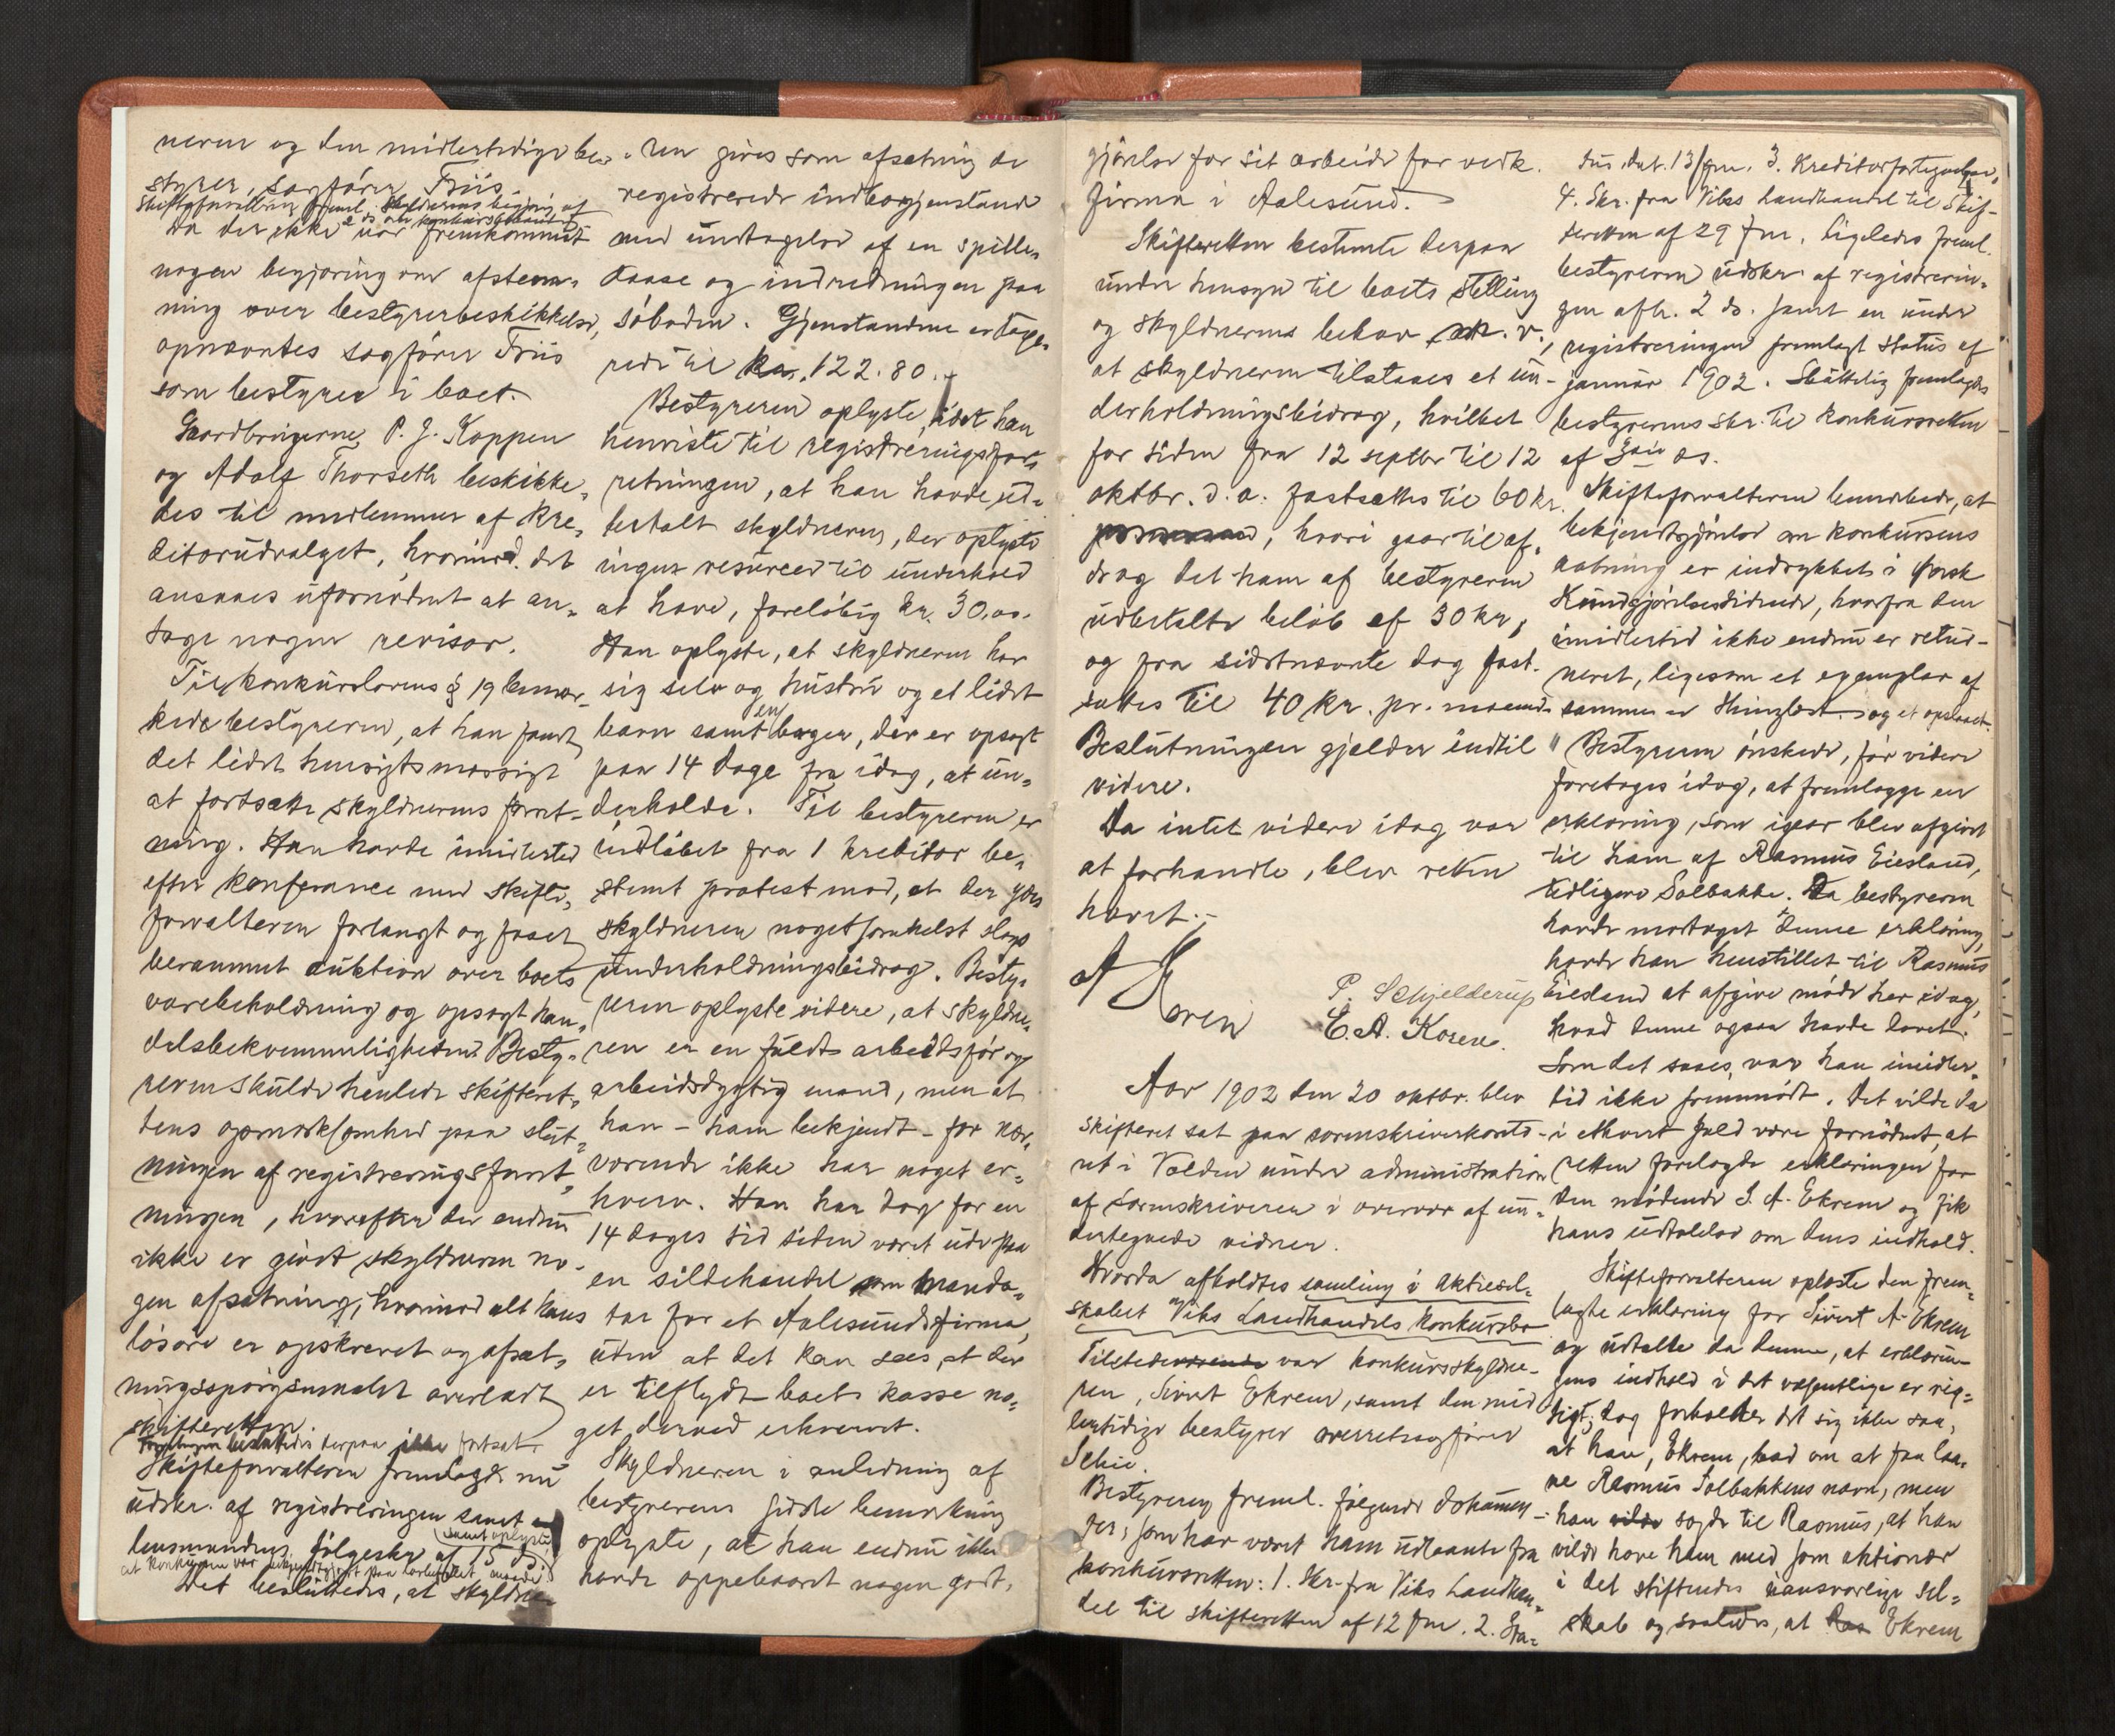 neren og den midlertidige be-
styrer, sagfører Friis.
Skifteforvalteren freml. skyldnerens begjæring af
2 ds om konkursbehandl.
Da der ikke var fremkommet
nogen begjæring om afstem-
ning over bestyrerbeskikkelse,
opnævntes sagfører Friis
som bestyrer i boet.
Gaardbrugerne P. J. Koppen
og Adolf Thorseth beskikke-
des til medlemmer af kre-
ditorudvalget, hvorimod det
ansaaes ufornødent at an-
tage nogen revisor.
Til konkurslovens § 19 bemær-
kede bestyreren, at han fandt
det lidet hensigtsmæssigt
at fortsætte skyldnerens forret-
ning. Han havde imidlertid
efter konferance med skifte-
forvalteren forlangt og faaet
berammet auktion over boets
varebeholdning og opsagt han-
delsbekvemmelighederne. Besty-
reren skulde henlede skifteret-
tens opmærksomhed paa slut-
ningen af registreringsforret-
ningen, hvorefter der endnu
ikke er givet skyldneren no-
gen afsætning, hvorimod alt hans
løsøre er opskrevet og afsæt-
ningsspørgsmaalet overladt
skifteretten.
besluttedes derpaa ikke fortsat.
Skifteforvalteren fremlagde nu
udskr. af registreringen samt
lensmandens følgeskr. af 15 ds.
samt oplyste
at konkursen var bekjendtgjort paa lovbefalet maade.
Det besluttedes, at skyldne-
ren gives som afsætning de
registrerede indbogjenstande
med undtagelse af en spille-
daase og indredningen paa
søboden. Gjenstandene er taxe-
rede til kr. 122.80.
Bestyreren oplyste, idet han
henviste til registreringsfor-
retningen, at han havde ud-
betalt skyldneren, der oplyste
ingen resurcer til underhold
at have, foreløbig kr. 30.00.
Han oplyste, at skyldneren har
sig selv og hustru og et lidet
barn samt en bager, der er opsagt
paa 14 dage fra idag, at un-
derholde. Til bestyreren er
indløbet fra 1 kreditor be-
stemt protest mod, at der ydes
skyldneren nogetsomhelst slags
underholdningsbidrag. Besty-
reren oplyste videre, at skyldne-
ren er en fuldt arbeidsfør og
arbeidsdygtig mand, men at
han – ham bekjendt – for nær-
værende ikke har noget er-
hverv. Han har dog for en
14 dages tid siden været ude paa
en sildehandel som manda-
tar for et Aalesundsfirma,
uden at det kan sees, at der
er tilflydt boets kasse no-
get derved erhvervet.
Skyldneren i anledning af
bestyrerens sidste bemærkning
oplyste, at han endnu ikke
havde oppebaaret nogen godt-
gjørelse for sit arbeide for vedk.
firma i Aalesund.
Skifteretten bestemte derpaa
under hensyn til boets stilling
og skyldnerens behov m. v.,
at skyldneren tilstaaes et un-
derholdningsbidrag, hvilket
for tiden fra 12 septbr til 12
oktbr. d. a. fastsættes til 60 kr.
, hvori gaar til af-
drag det ham af bestyreren
udbetalte beløb af 30 kr,
og fra sidstnævnte dag fast-
sættes til 40 kr. pr. maaned.
Beslutningen gjelder indtil
videre.
Da intet videre idag var
at forhandle, blev retten
hævet.
A Koren
P. Schjelderup
E. A. Koren.
Aar 1902 den 20 oktbr. blev
skifteret sat paa sorenskriverkonto-
ret i Volden under administration
af sorenskriveren i overvær af un-
dertegnede vidner.
Hvorda afholdtes samling i aktiesel-
skabet Viks Landhandels konkursbo
Tilstedeværende var konkursskyldne-
ren, Sivert Ekrem, samt den mid-
lertidige bestyrer overretssagfører
Schie.
Bestyreren freml. følgende dokumen-
ter, som har været ham udlaante fra
konkursretten: 1. Skr. fra Viks Landhan-
del til skifteretten af 12 fm. 2. Sta-
tus dat. 13/ fm. 3. Kreditorfortegnelse,
4. Skr. fra Viks Landhandel til skif-
teretten af 29 fm. Ligeledes freml.
bestyreren udskr. af registrerin-
gen afh. 2 ds. samt en under
registreringen fremlagt status af
januar 1902. Skiftelig fremlagdes
bestyrerens skr. til konkursretten
af ds.
Skifteforvalteren bemærkede, at
bekjendtgjørelse om konkursens
aabning er indrykket i Norsk
Kundgjørelsestidende, hvorfra den
imidlertid ikke endnu er retur-
neret, ligesom et exemplar af
samme er thinglæst og et opslaaet.
Bestyreren ønskede, før videre
foretages idag, at fremlægge en
erklæring, som igaar blev afgivet
til ham af Rasmus Eiesland,
tidligere Solbakke. Da bestyreren
havde modtaget denne erklæring,
havde han henstillet til Rasmus
Eiesland at afgive møde her idag,
hvad denne ogsaa havde lovet.
Som det saaes, var han imidler-
tid ikke fremmødt. Det vilde da
i ethvert fald være fornødent, at
retten forelagde erklæringen for
den mødende S. A. Ekrem og fik
hans udtalelse om dens indhold.
Skifteforvalteren oplæste den frem-
lagte erklæring for Sivert A. Ekrem
og udtalte da denne, at erklærin-
gens indhold i det væsentlige er rig-
tigt; dog forholder det sig ikke saa,
at han, Ekrem, bad om at faa laa-
ne Rasmus Solbakkens navn, men
han vilde sagde til Rasmus, at han
vilde have ham med som aktionær
i det stiftende uansvarlige sel-
skab og saaledes, at Ras Ekrem